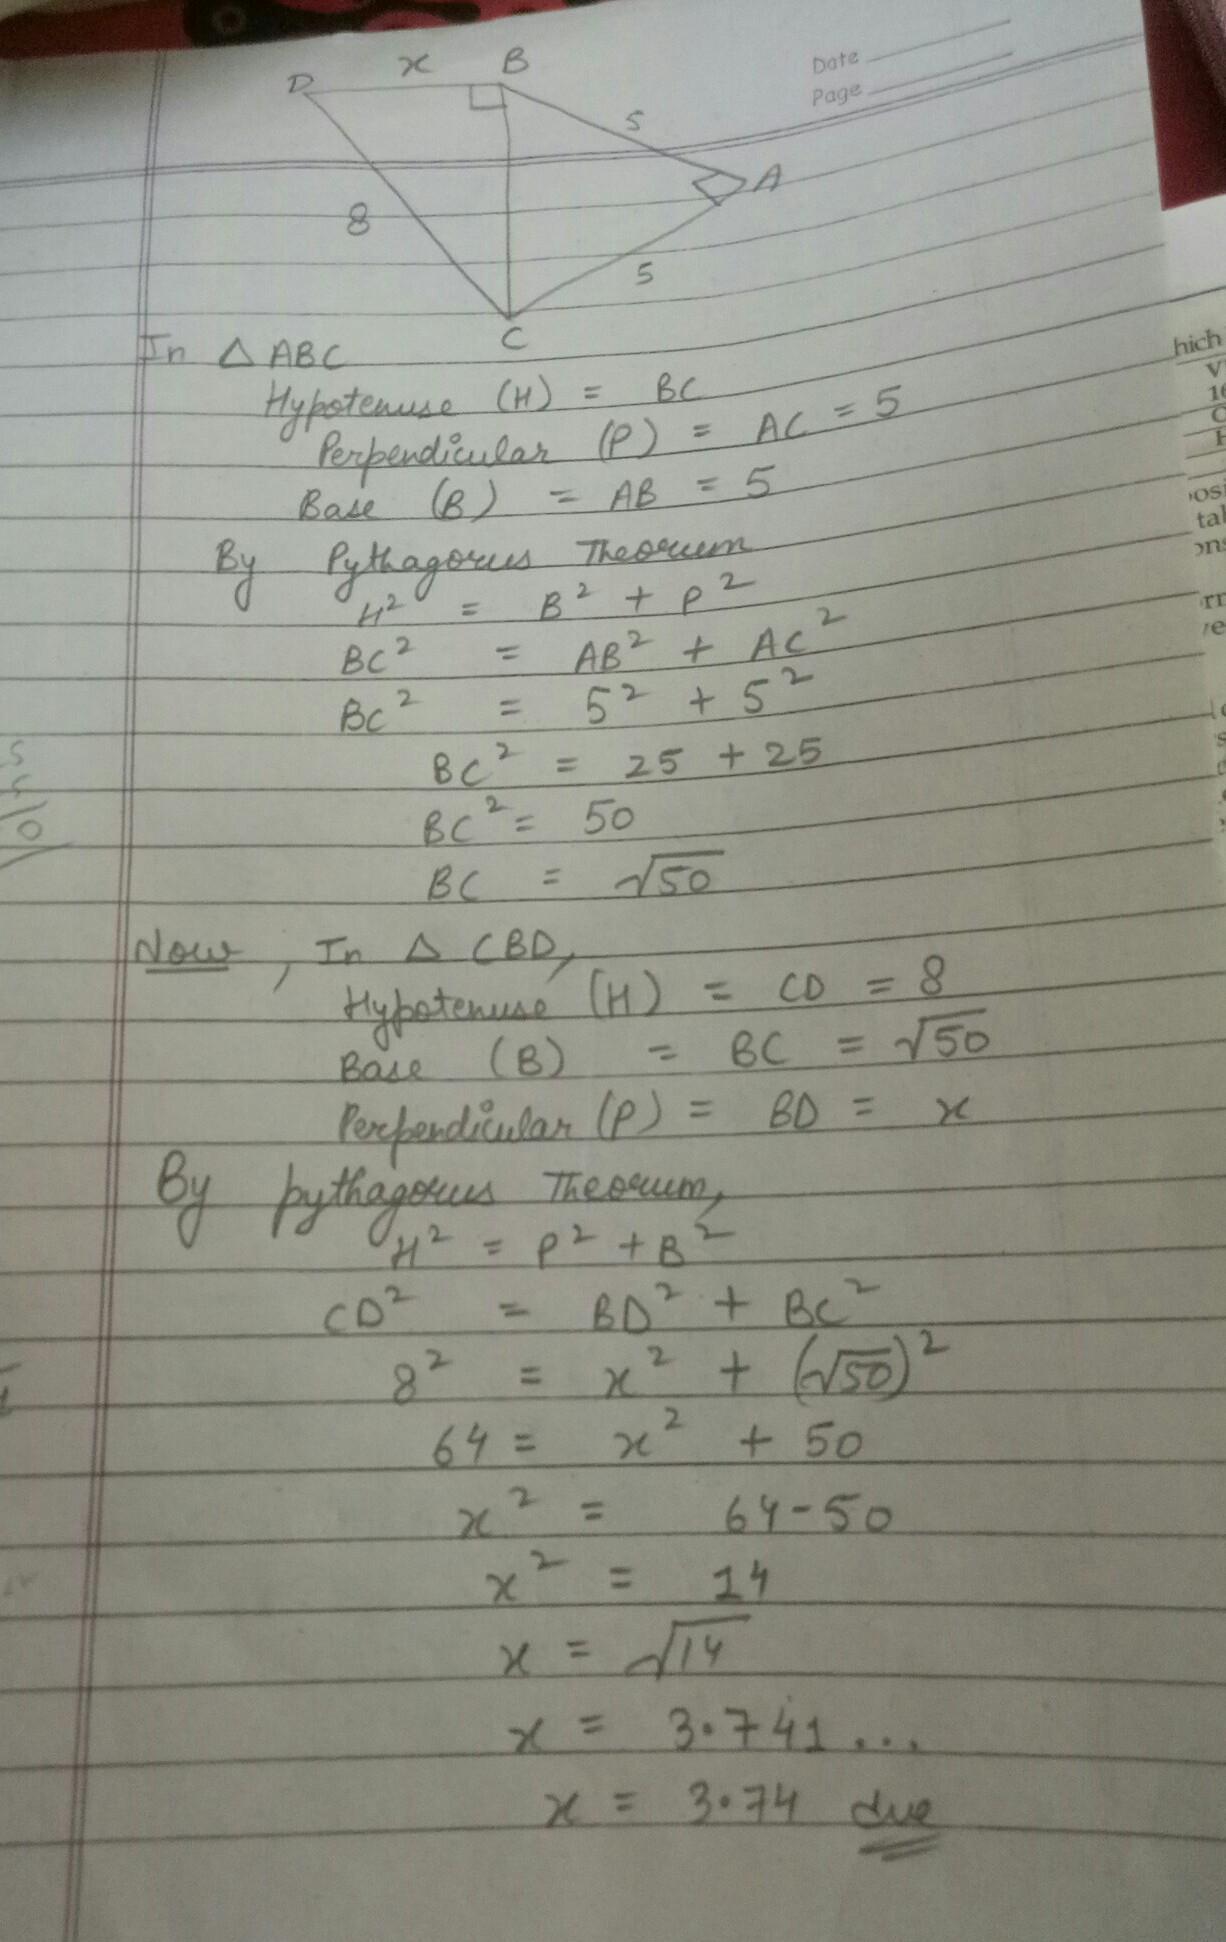 Date
Page
x
D
B
5
A
8
5
C
In △ ABC
Hypotenuse (H) = BC
Perpendicular (P) = AC = 5
Base (B) = AB = 5
By Pythagorus Theorum
H² = B² + P²
BC² = AB² + AC²
BC² = 5² + 5²
BC² = 25 + 25
BC² = 50
BC = √50
Now, In △ CBD,
Hypotenuse (H) = CD = 8
Base (B) = BC = √50
Perpendicular (P) = BD = x
By pythagorus Theorum,
H² = P² + B²
CD² = BD² + BC²
8² = x² + (√50)²
64 = x² + 50
x² = 64-50
x² = 14
x = √14
x = 3.741...
x = 3.74
hich